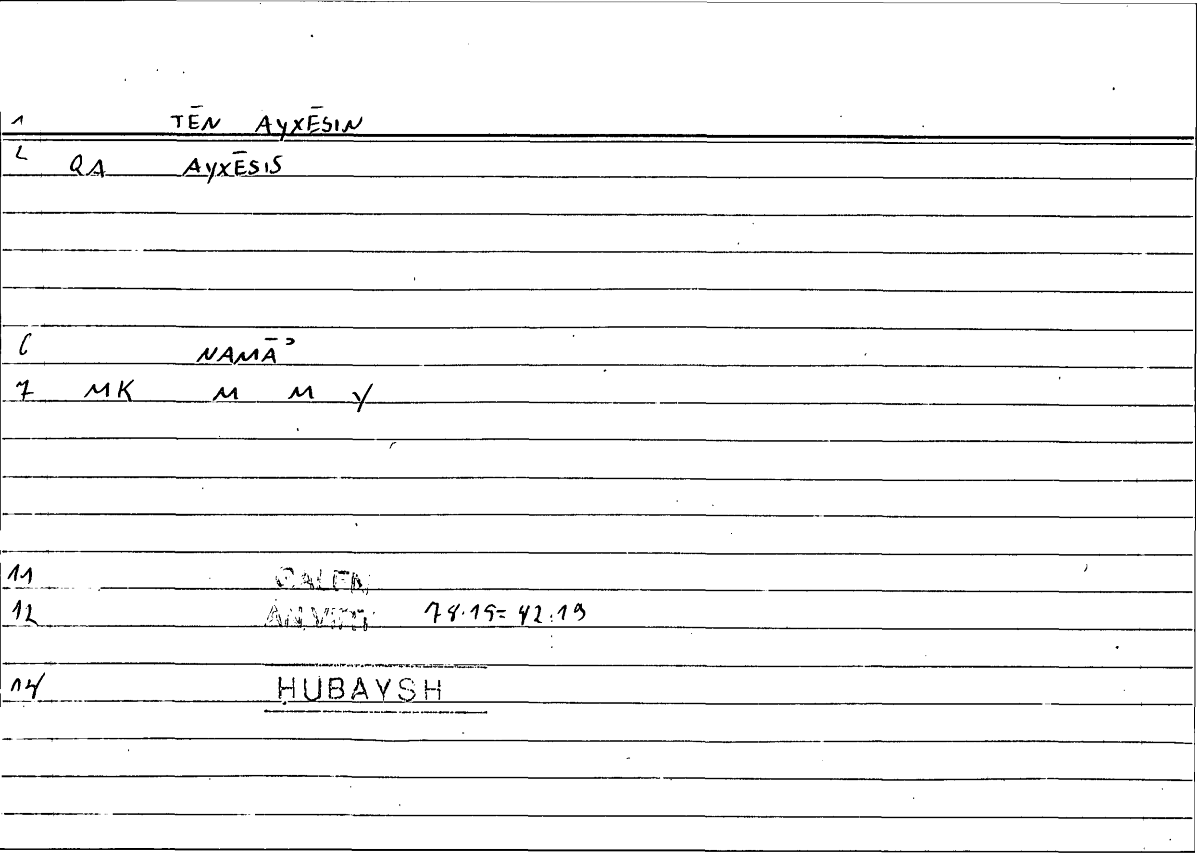 1 TĒN AyXĒSIN
2 QA AyXĒSIS
6 NAMĀʾ
7 MK M M Y
11 GALEN
12 AN.VIRT 78.19= 42.19
14 ḤUBAYSH